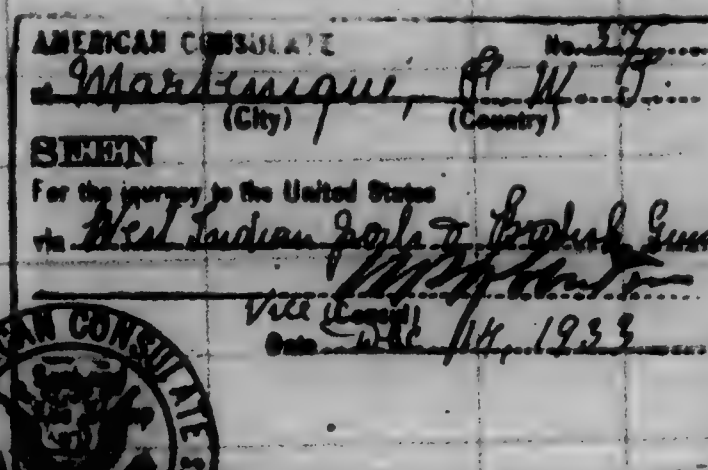 AMERICAN CONSULATE No. 37
at Martinique, F W I
(City) (Country)
SEEN
For the journey to the United States
via West Indian ports & British
Vice (Consul)
Date Dec 14, 1933
AN CONSULATE